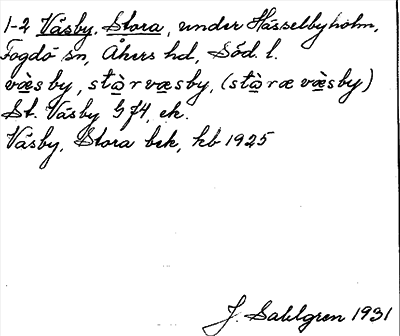 1-2 Väsby, Stora, under Hässelbyholm,
Fogdö sn, Åkers hd, Söd. l.
væ̀sby, stà̱rvæsby, (stà̱ræ væ̀sby)
St. Väsby G 74, ek.
Väsby, Stora bek, kb 1925
J. Sahlgren 1931